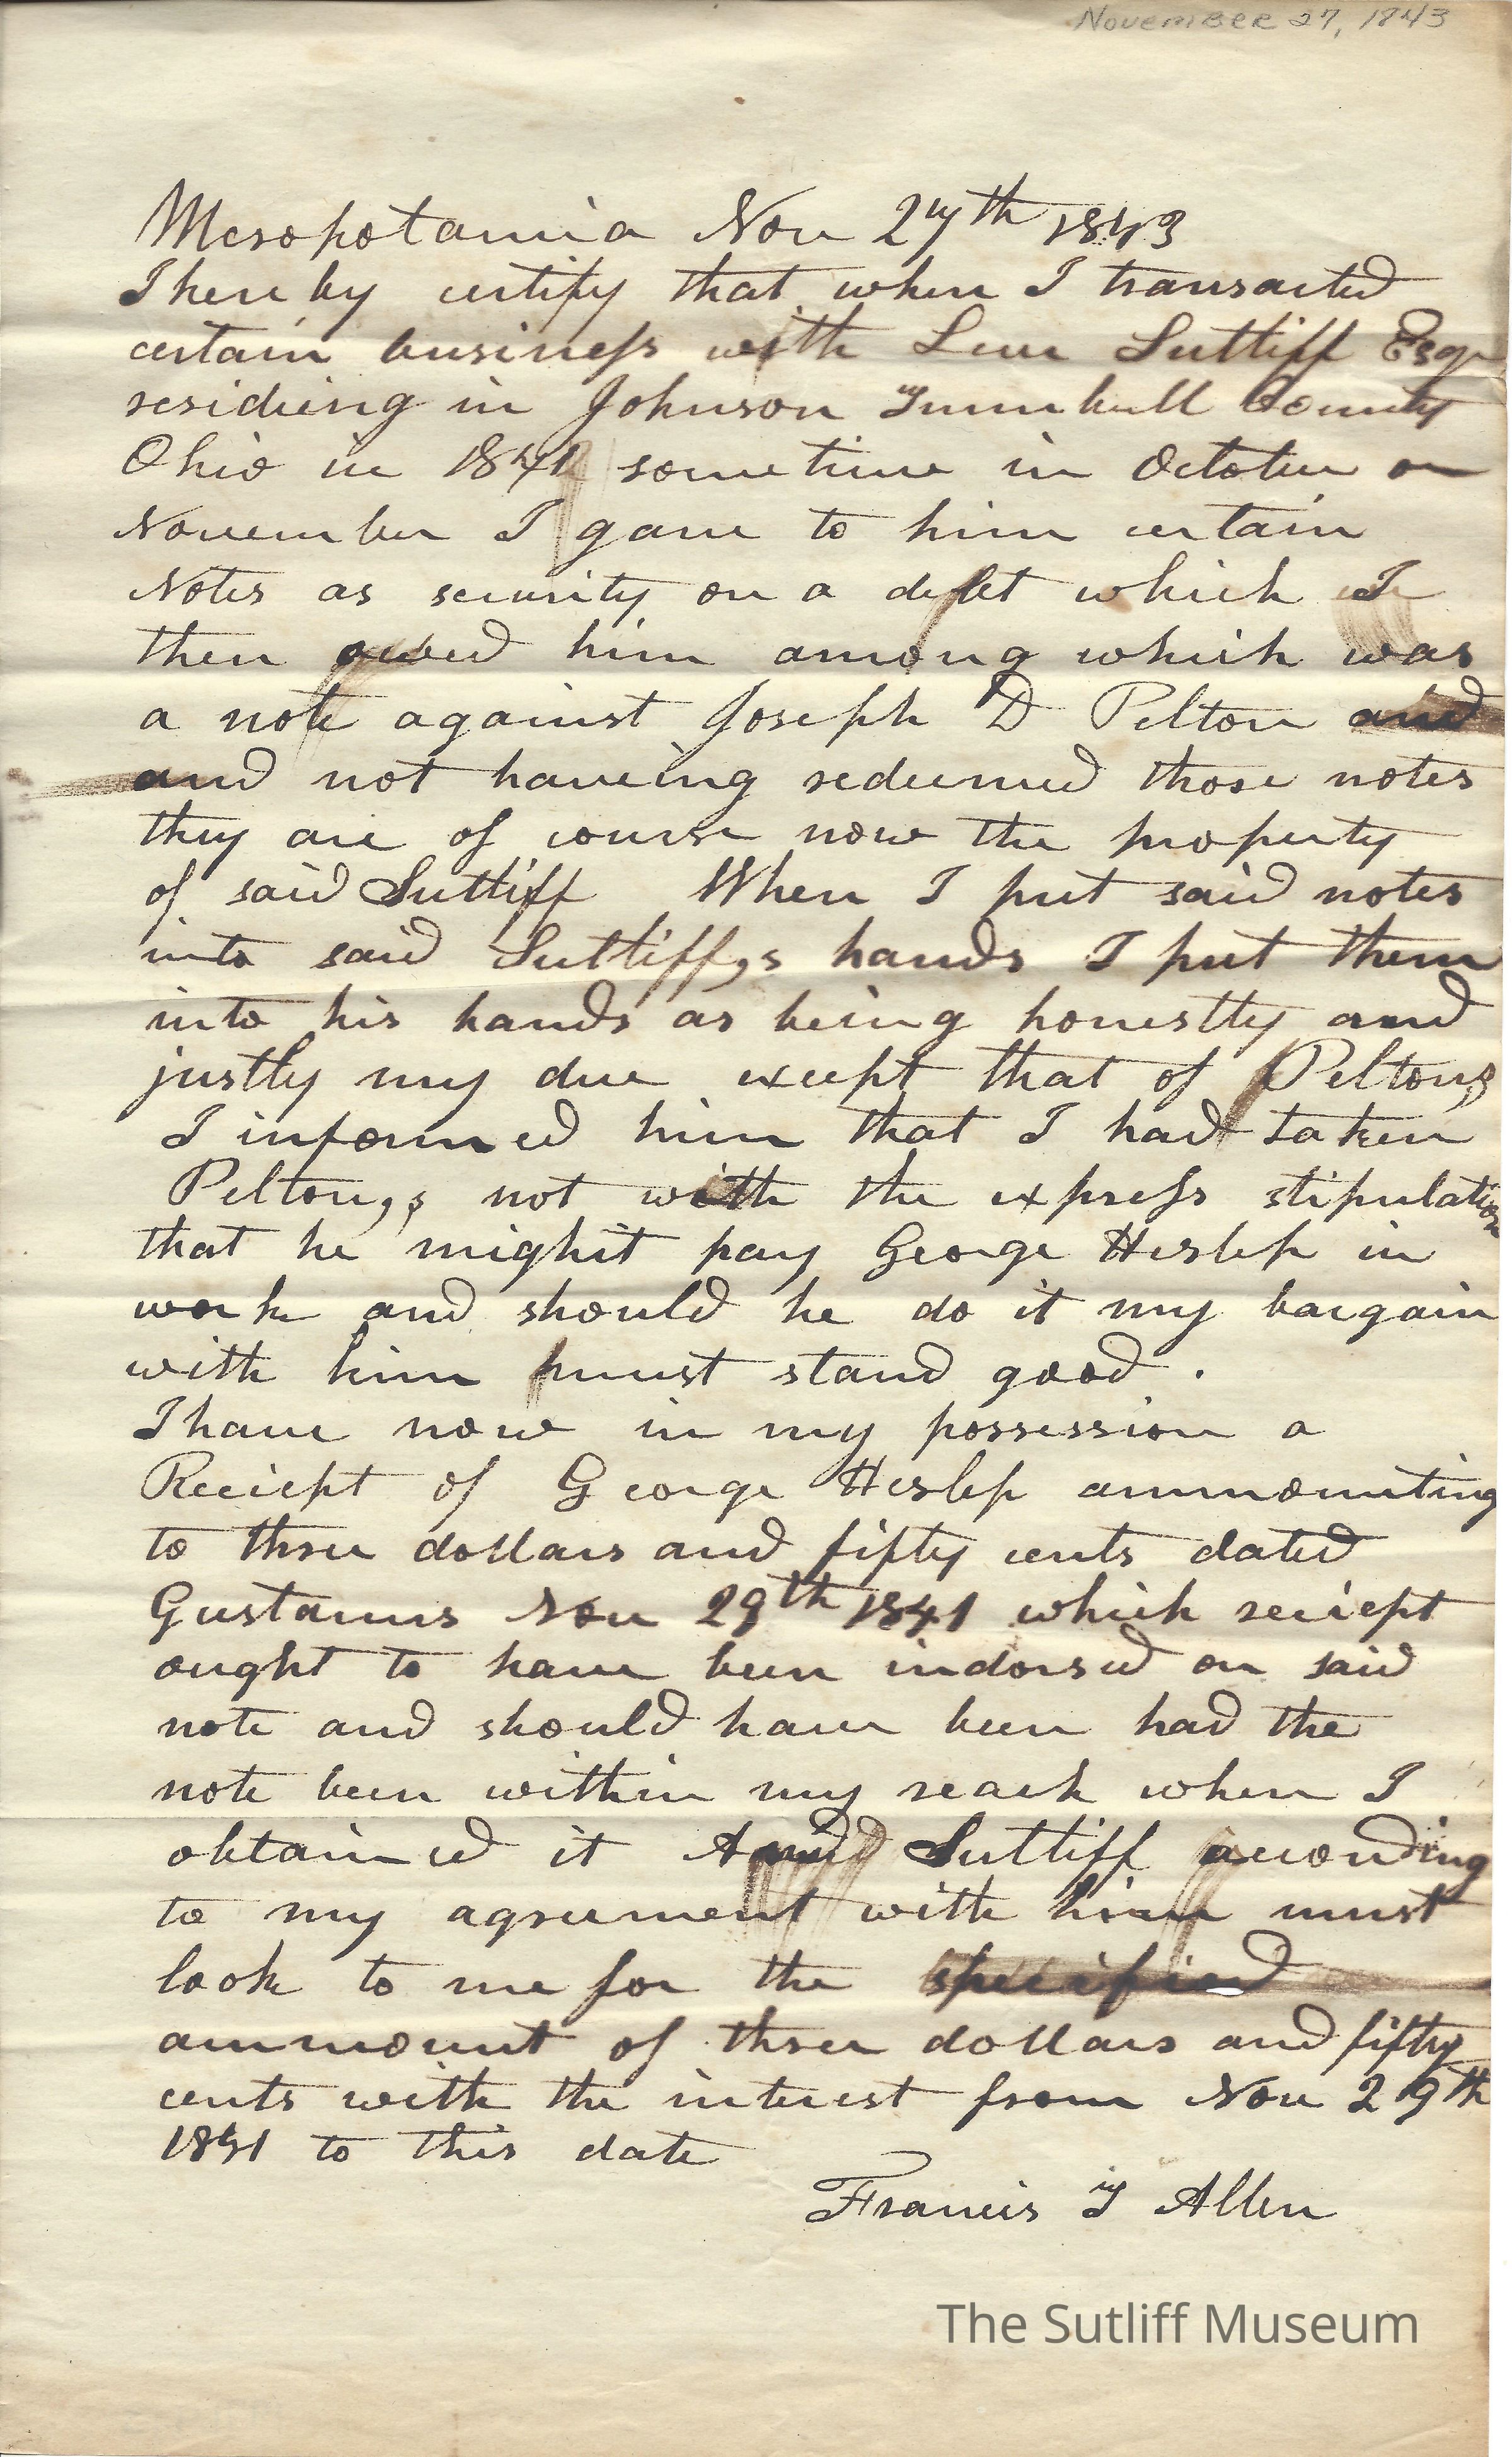 November 27, 1843
Mesopotamia Nov 27th 1843
I here by certify that when I transacted
certain business with Levi Suttliff Esqr
resideing in Johnson Trumbull County
Ohio in 1841 some time in October or
November I gave to him certain
Notes as security on a debt which I
then owed him among which was
a note against Joseph D Pelton and
and not haveing redeemed those notes
they are of course now the property
of said Suttliff When I put said notes
into said Suttliff,s hands I put them
into his hands as being honestly and
justly my due except that of Pelton,s
I informed him that I had taken
Pelton,s not with the express stipulation
that he mighit pay George Heslep in
work and should he do it my bargain
with him must stand good.
I have now in my possession a
Reciept of George Heslep ammounting
to three dollars and fifty cents dated
Gustavus Nov 29th 1841 which reciept
ought to have been indorsed on said
note and should have been had the
note been within my reach when I
obtained it And Suttliff according
to my agreement with him must
look to me for the specified
ammount of three dollars and fifty
cents with the interest from Nov 29th
1841 to this date
Francis T Allen
The Sutliff Museum